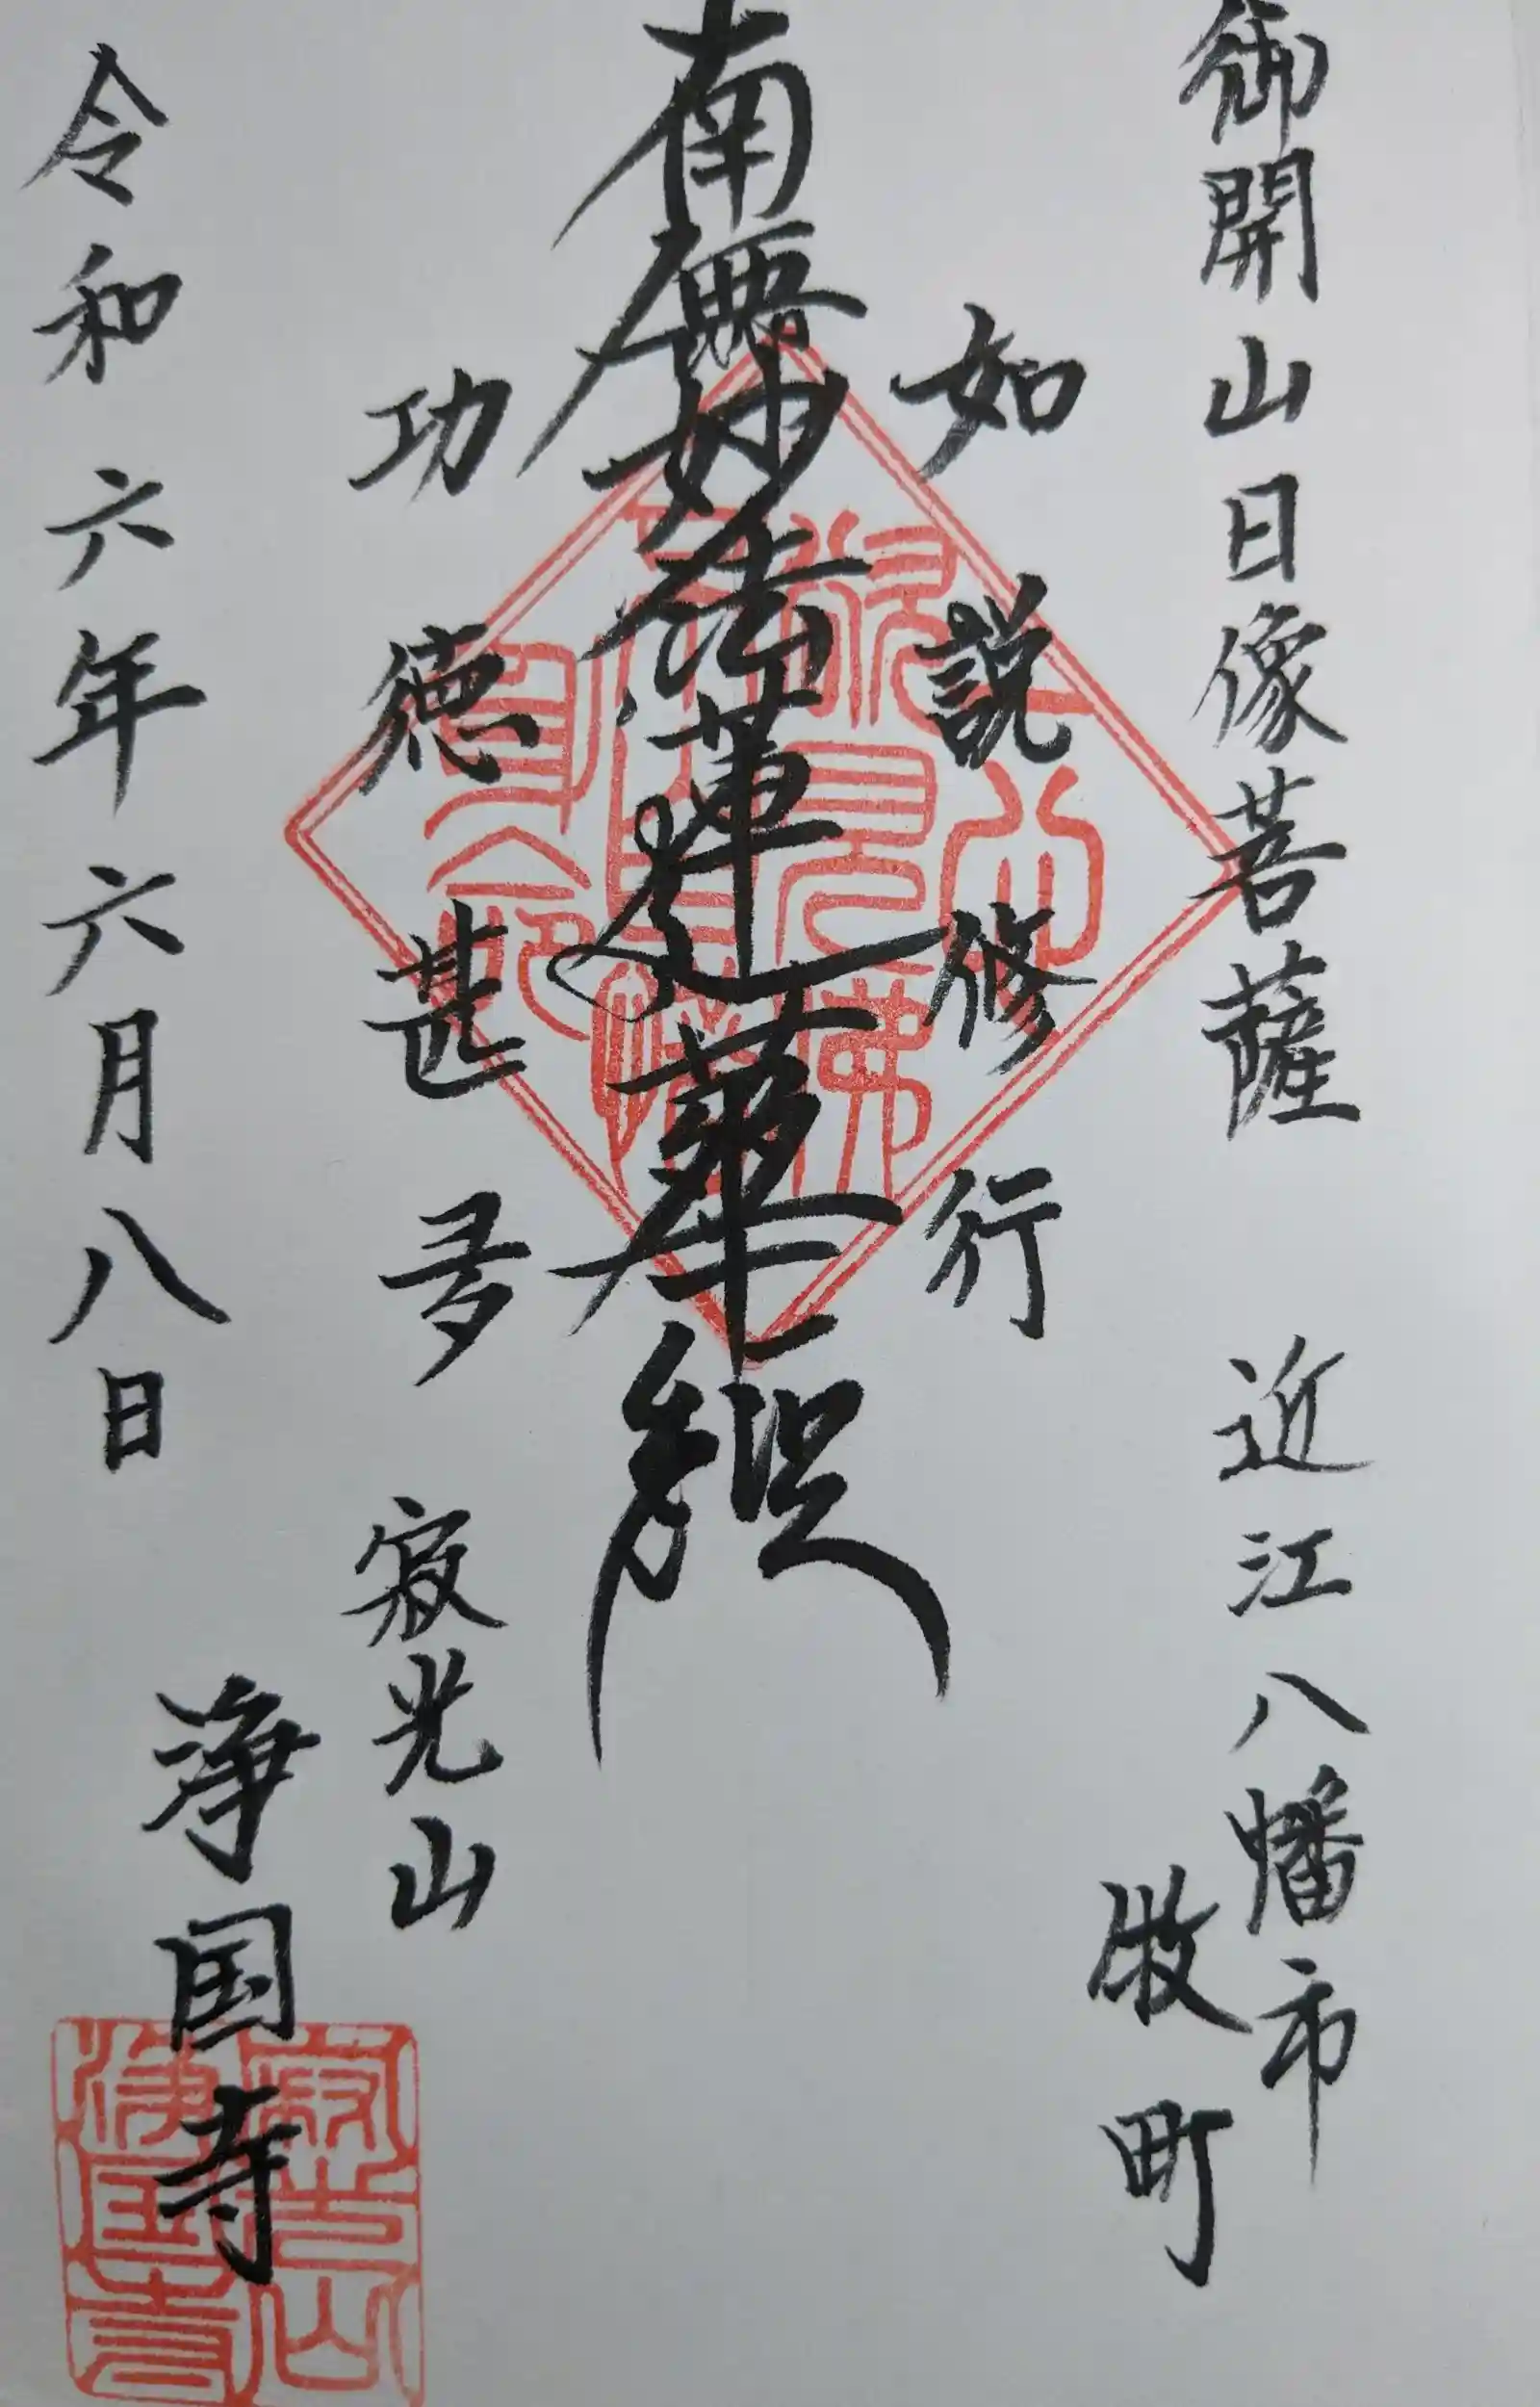 御開山日像菩薩 近江八幡市
牧町
如説修行
南無妙法蓮華経
功徳甚多
寂光山
浄国寺
令和六年六月八日
寂光山
浄国寺